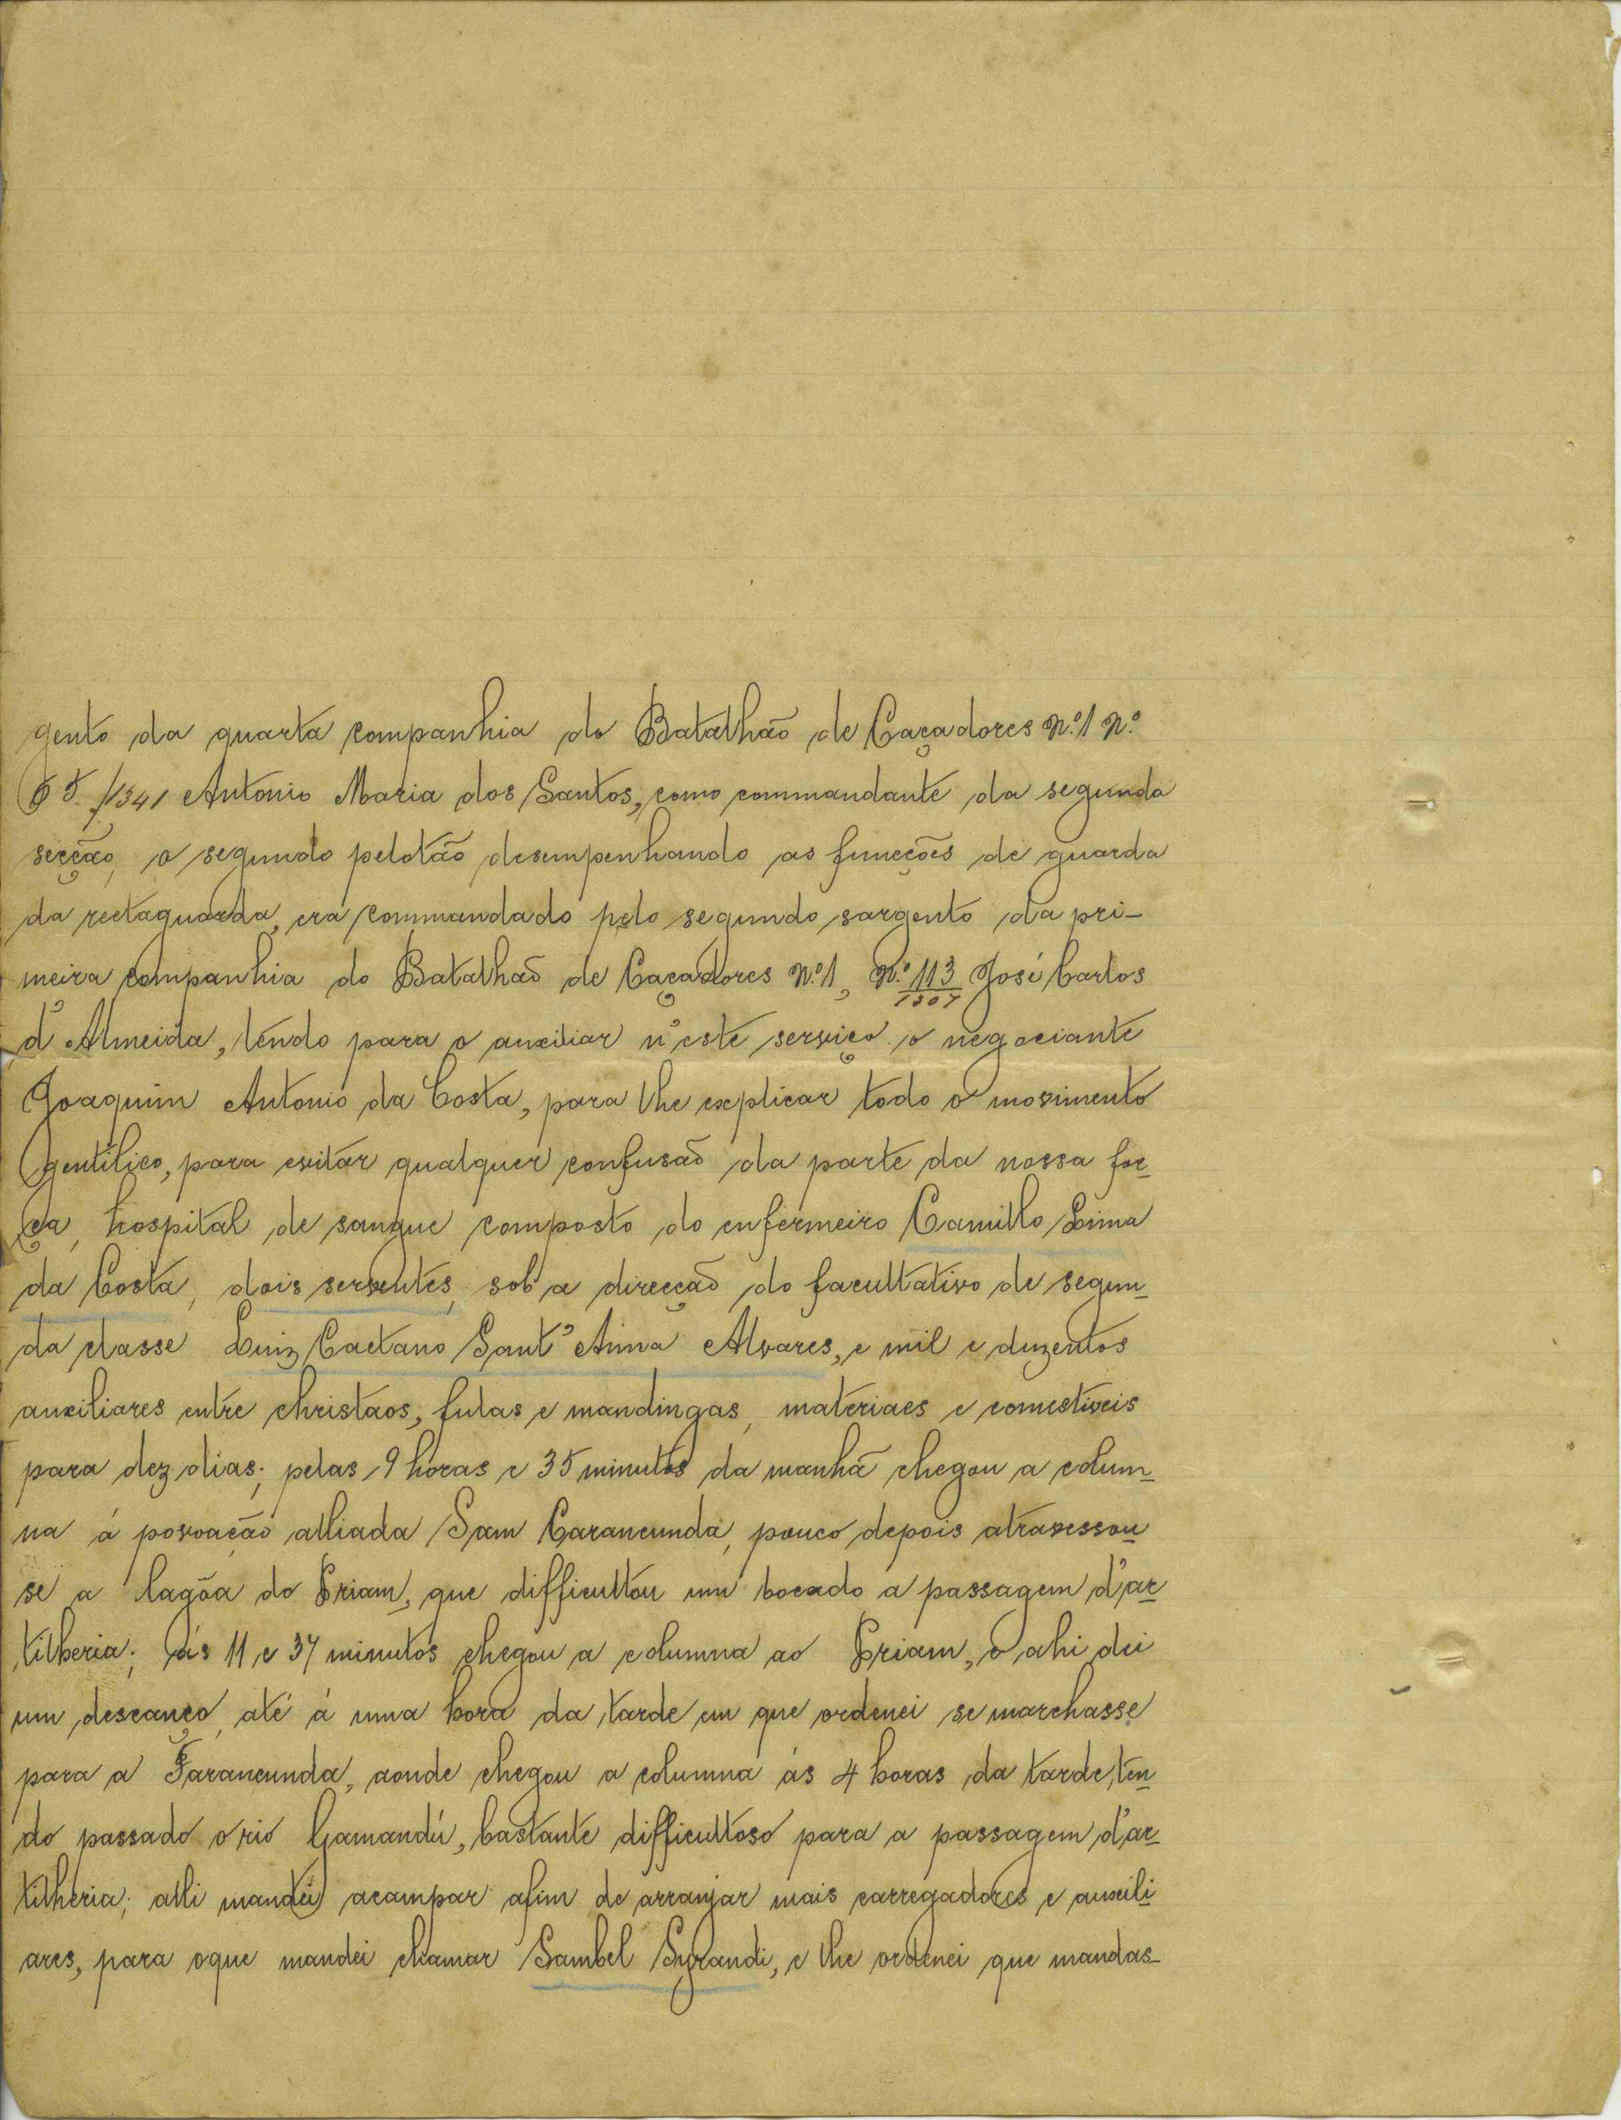 gento da quarta companhia do Batalhão de Caçadores Nº 1 Nº
65/1341 Antonio Maria dos Santos, como commandante da segunda
secção, o segundo pelotão desempenhando as funcções de guarda
da rectaguarda, era commandado pelo segundo sargento da pri-
meira companhia do Batalhão de Caçadores Nº 1, Nº 113/1307 José Carlos
d'Almeida, tendo para o auxiliar n'este serviço o negociante
Joaquim Antonio da Costa, para lhe explicar todo o movimento
gentilico, para evitar qualquer confusão da parte da nossa for-
ça, hospital de sangue composto do enfermeiro Camillo Lima
da Costa, dois serventes, sob a direcção do facultativo de segun-
da classe Luiz Caetano Sant'Anna Alvares, e mil e duzentos
auxiliares entre christãos, fulas e mandingas, materiaes e comestiveis
para dez dias; pelas 9 horas e 35 minutos da manhã chegou a colum-
na á povoação alliada Sam Carancunda, pouco depois atravessou
se a lagôa do Priam, que difficultou um bocado a passagem d'ar-
tilheria; ás 11 e 37 minutos chegou a columna ao Priam, e ahi dei
um descanço até á uma hora da tarde em que ordenei se marchasse
para a Farancunda, aonde chegou a columna ás 4 horas da tarde, ten-
do passado o rio Gamandú, bastante difficultoso para a passagem d'ar-
tilheria; alli mandei acampar afim de arranjar mais carregadores e auxili-
ares, para o que mandei chamar Sambel Syrandi, e lhe ordenei que mandas-